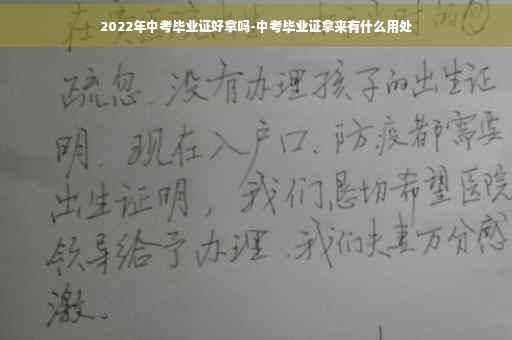 2022年中考毕业证好拿吗-中考毕业证拿来有什么用处
疏忽.没有办理孩子的出生证
明.现在入户口、防疫都需要
出生证明，我们恳切希望医院
领导给予办理.我们夫妻万分感
激。